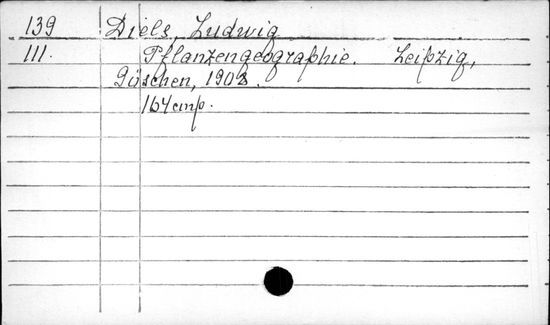 139 Diels, Ludwig
111. Pflanzengeographie. Leipzig,
Göschen, 1908.
164 стр.